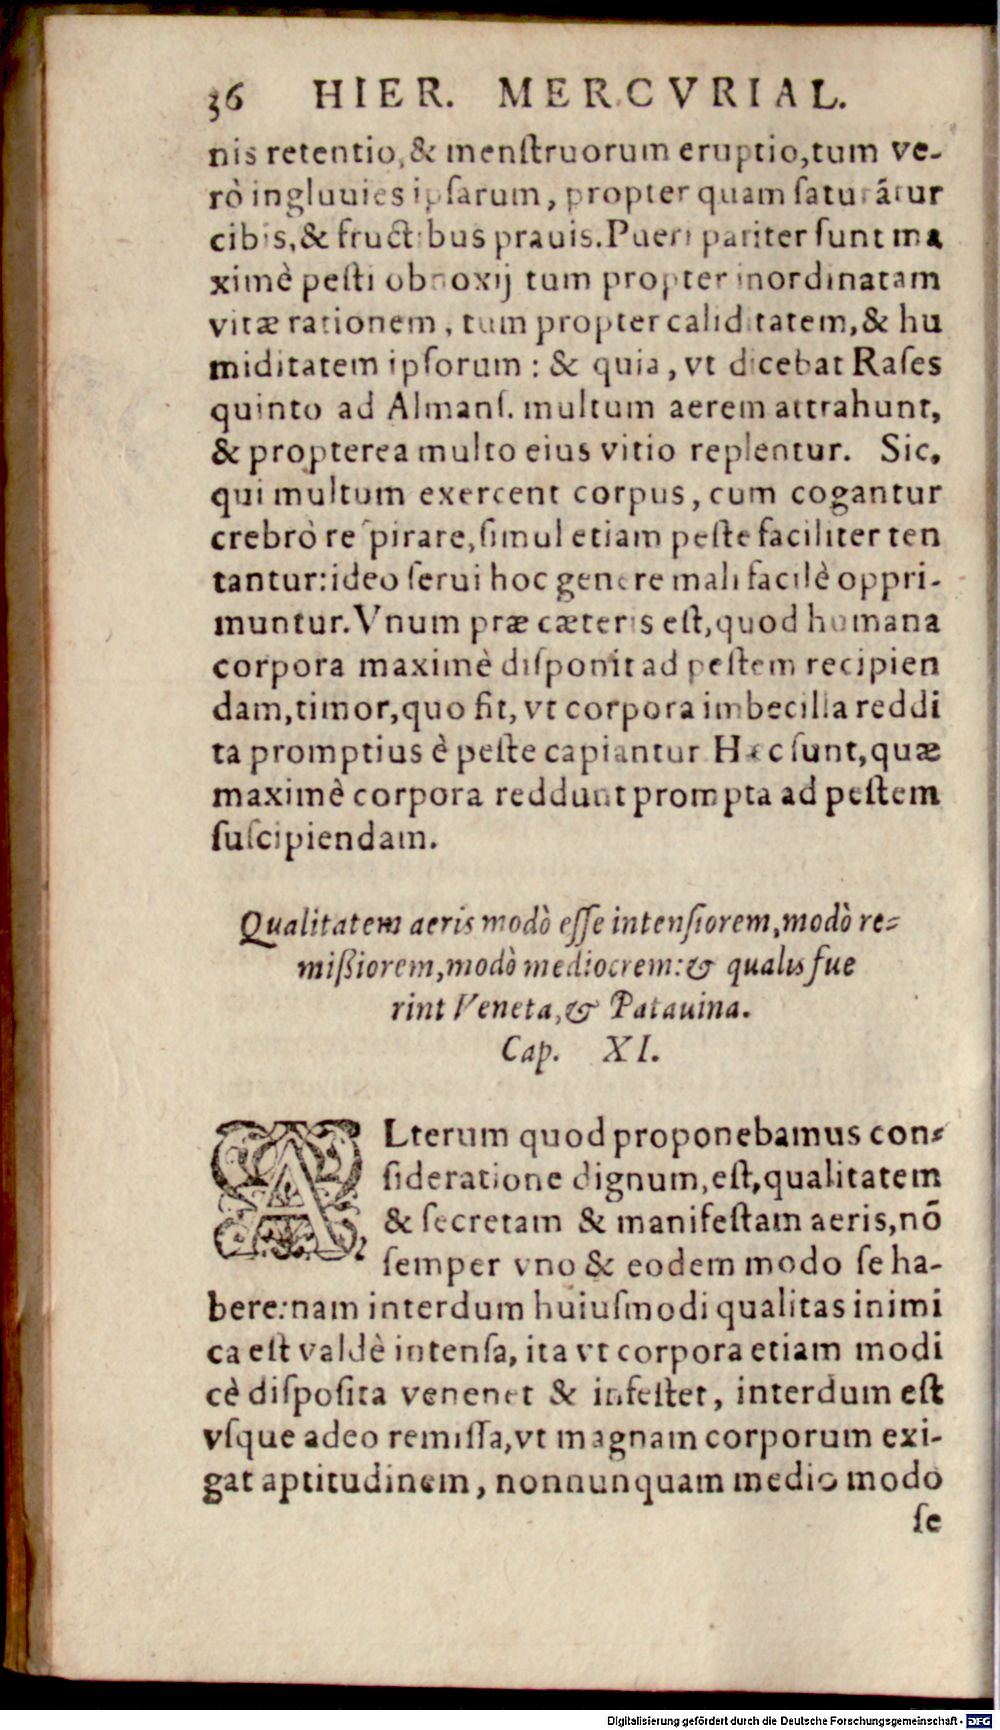 36 HIER. MERCVRIAL.
nis retentio, & menſtruorum eruptio, tum ve-
rò ingluuies ipſarum, propter quam ſaturãtur
cibis, & fructibus prauis. Pueri pariter ſunt ma
ximè peſti obnoxij tum propter inordinatam
vitæ rationem, tum propter caliditatem, & hu
miditatem ipſorum : & quia, vt dicebat Raſes
quinto ad Almanſ. multum aerem attrahunt,
& propterea multo eius vitio replentur. Sic,
qui multum exercent corpus, cum cogantur
crebrò reſpirare, ſimul etiam peſte faciliter ten
tantur: ideo ſerui hoc genere mali facilè oppri-
muntur. Vnum præ cæteris eſt, quod humana
corpora maximè diſponit ad peſtem recipien
dam, timor, quo fit, vt corpora imbecilla reddi
ta promptius è peſte capiantur Hæc ſunt, quæ
maximè corpora reddunt prompta ad peſtem
ſuſcipiendam.
Qualitatem aeris modò eſſe intenſiorem, modò re-
mißiorem, modò mediocrem: & qualis fue
rint Veneta, & Patauina.
Cap. XI.
ALterum quod proponebamus con-
ſideratione dignum, eſt, qualitatem
& ſecretam & manifeſtam aeris, nõ
ſemper vno & eodem modo ſe ha-
bere: nam interdum huiuſmodi qualitas inimi
ca eſt valdè intenſa, ita vt corpora etiam modi
cè diſpoſita venenet & infeſtet, interdum eſt
vſque adeo remiſſa, vt magnam corporum exi-
gat aptitudinem, nonnunquam medio modo
ſe
Digitalisierung gefördert durch die Deutsche Forschungsgemeinschaft - DFG